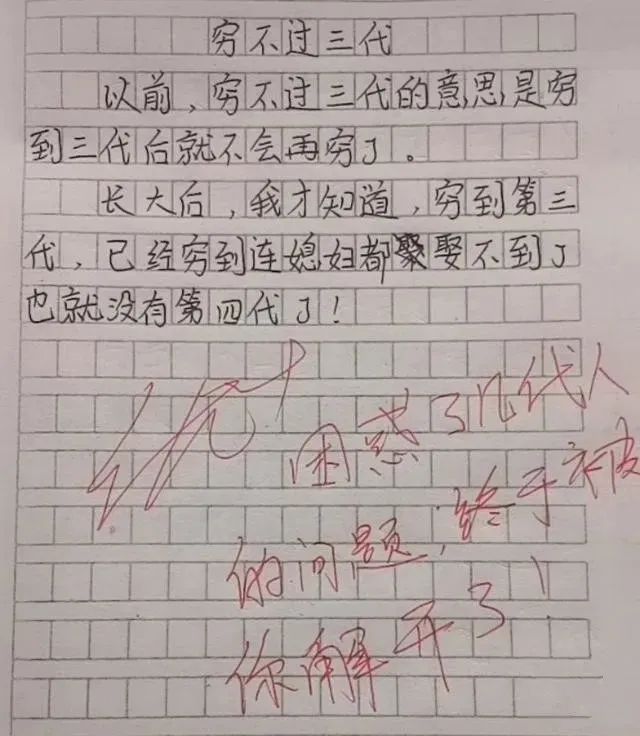 穷不过三代
以前,穷不过三代的意思是穷
到三代后就不会再穷了。
长大后,我才知道,穷到第三
代,已经穷到连媳妇都聚娶不到了
也就没有第四代了!
优+
困惑了几代人
的问题,终于被
你解开了!